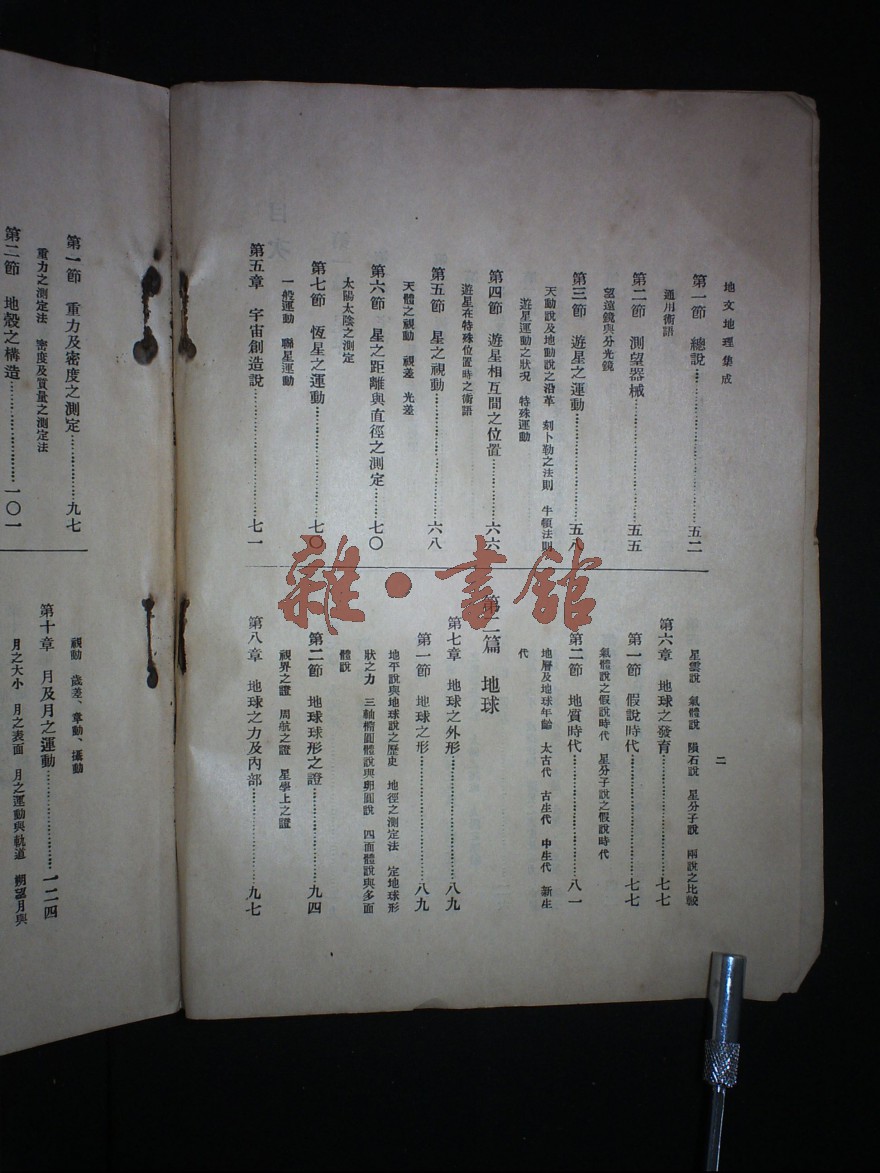 地文地理集成
二
第一節 總說……五二
通用術語
第二節 測望器械……五五
望遠鏡與分光鏡
第三節 遊星之運動……五八
天動說及地動說之沿革 刻卜勒之法則 牛頓法則
遊星運動之狀況 特殊運動
第四節 遊星相互間之位置……六六
遊星在特殊位置時之術語
第五節 星之視動……六八
天體之視動 視差 光差
第六節 星之距離與直徑之測定……七〇
太陽太陰之測定
第七節 恆星之運動……七〇
一般運動 聯星運動
第五章 宇宙創造說……七一
星雲說 氣體說 隕石說 星分子說 兩說之比較
第六章 地球之發育……七七
第一節 假說時代……七七
氣體說之假說時代 星分子說之假說時代
第二節 地質時代……八一
地層及地球年齡 太古代 古生代 中生代 新生
代
第二篇 地球
第七章 地球之外形……八九
第一節 地球之形……八九
地平說與地球說之歷史 地徑之測定法 定地球形
狀之力 三軸橢圓體說與卵圓說 四面體說與多面
體說
第二節 地球球形之證……九四
視界之證 周航之證 星學上之證
第八章 地球之力及內部……九七
第一節 重力及密度之測定……九七
重力之測定法 密度及質量之測定法
第二節 地殼之構造……一〇一
視動 歲差、章動、攝動
第十章 月及月之運動……一二四
月之大小 月之表面 月之運動與軌道 朔望月與
雜·書館